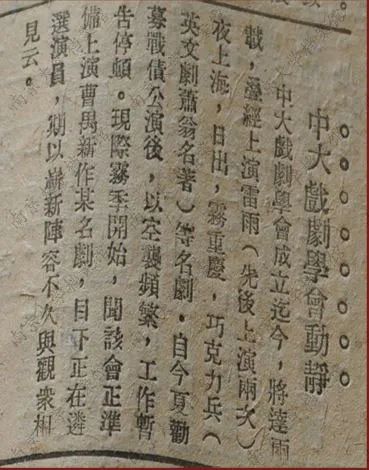 中大戲劇學會動靜
中大戲劇學會成立迄今，將達兩
載，疊經上演雷雨（先後上演兩次）
夜上海，日出，霧重慶，巧克力兵（
英文劇蕭翁名著）等名劇．自今夏勸
募戰債公演後，以空襲頻繁，工作暫
告停頓。現際霧季開始，聞該會正準
備上演曹禺新作某名劇，目下正在遴
選演員，期以嶄新陣容不久與觀衆相
見云。